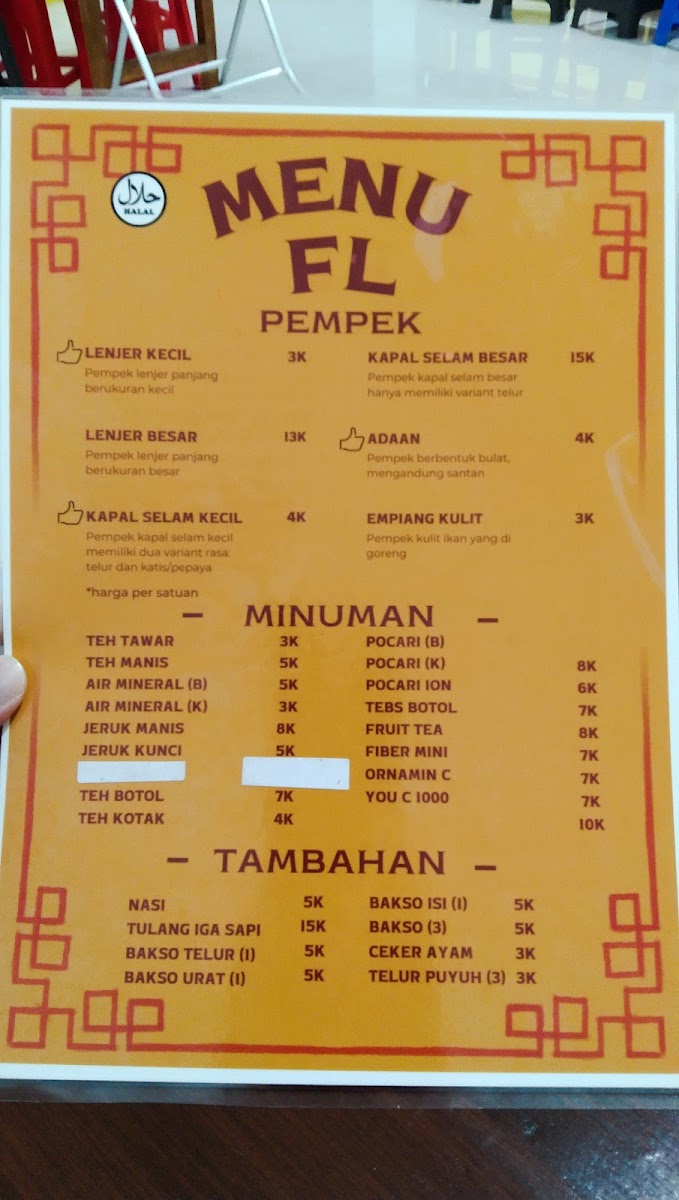 حلال
HALAL
MENU
FL
PEMPEK
LENJER KECIL 3K
Pempek lenjer panjang
berukuran kecil
KAPAL SELAM BESAR 15K
Pempek kapal selam besar
hanya memiliki variant telur
LENJER BESAR 13K
Pempek lenjer panjang
berukuran besar
ADAAN 4K
Pempek berbentuk bulat,
mengandung santan
KAPAL SELAM KECIL 4K
Pempek kapal selam kecil
memiliki dua variant rasa:
telur dan katis/pepaya
EMPIANG KULIT 3K
Pempek kulit ikan yang di
goreng
*harga per satuan
- MINUMAN -
TEH TAWAR 3K
TEH MANIS 5K
AIR MINERAL (B) 5K
AIR MINERAL (K) 3K
JERUK MANIS 8K
JERUK KUNCI 5K
TEH BOTOL 7K
TEH KOTAK 4K
POCARI (B) 8K
POCARI (K) 6K
POCARI ION 7K
TEBS BOTOL 8K
FRUIT TEA 7K
FIBER MINI 7K
ORNAMIN C 7K
YOU C 1000 10K
- TAMBAHAN -
NASI 5K
TULANG IGA SAPI 15K
BAKSO TELUR (1) 5K
BAKSO URAT (1) 5K
BAKSO ISI (1) 5K
BAKSO (3) 5K
CEKER AYAM 3K
TELUR PUYUH (3) 3K